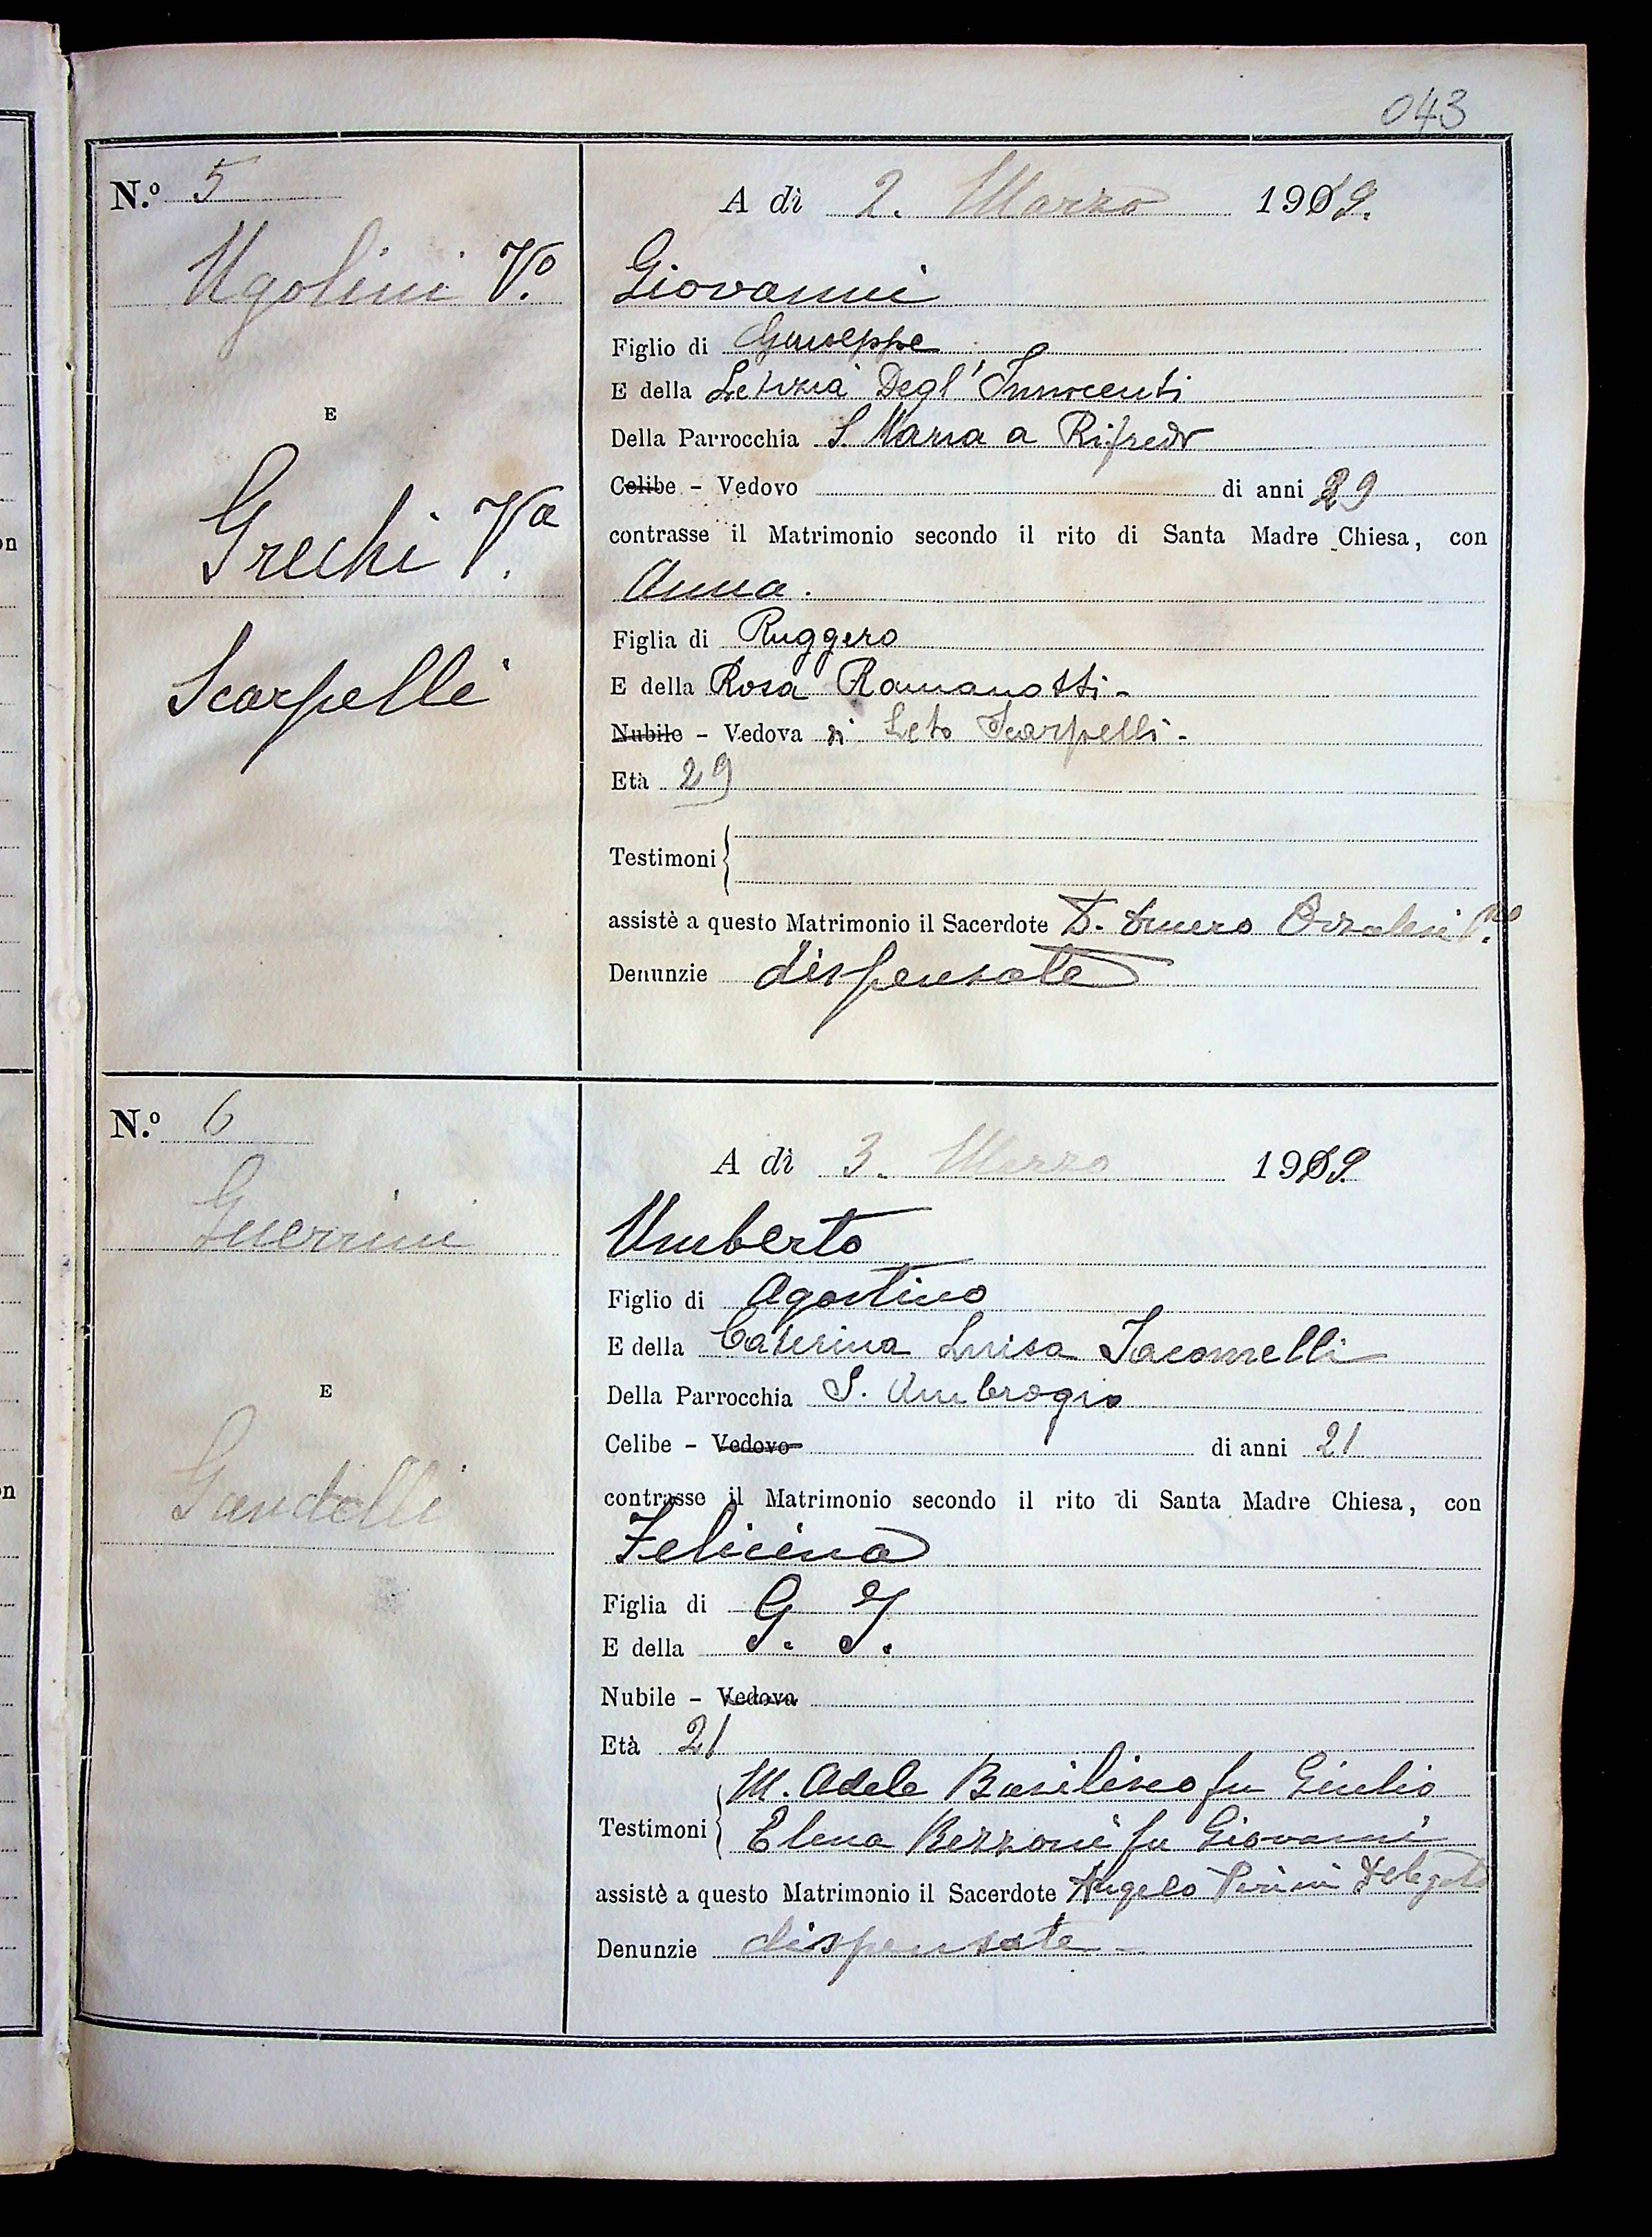 043
N.º 5
Ugolini V.o
E
Grechi V.a
Scarpelli
A dì 2. Marzo 1919.
Giovanni
Figlio di Giuseppe
E della Letizia Degl'Innocenti
Della Parrocchia S. Maria a Rifredi
Celibe - Vedovo di anni 29
contrasse il Matrimonio secondo il rito di Santa Madre Chiesa, con
Anna.
Figlia di Ruggero
E della Rosa Ramanotti -
Nubile - Vedova di Leto Scarpelli -
Età 29
Testimoni
assistè a questo Matrimonio il Sacerdote D.
Denunzie dispensate
N.º 6
Guerrini
E
Gandolli
A dì 3. Marzo 1919.
Umberto
Figlio di Agostino
E della Caterina Luisa Iacomelli
Della Parrocchia S. Ambrogio
Celibe - Vedovo di anni 21
contrasse il Matrimonio secondo il rito di Santa Madre Chiesa, con
Felicina
Figlia di G. I.
E della
Nubile - Vedova
Età 21
Testimoni M. Adele Basilisco fu Giulio
Elena Bezzoni fu Giovanni
assistè a questo Matrimonio il Sacerdote Angelo Perini Delegato
Denunzie dispensate -